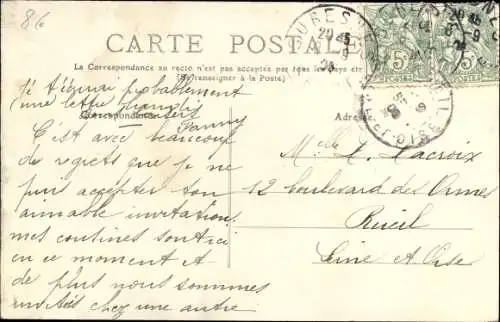 86
CARTE POSTALE
La Correspondance au recto n'est pas acceptée par tous les pays étr
(Se renseigner à la Poste)
Je t'écrirai probablement
une lettre
Correspondance
Adresse
baisers
Fanny
C'est avec beaucoup
de regrets que je ne
puis accepter ton
aimable invitation
mes cousines sont ici
en ce moment et
de plus nous sommes
invités chez une autre
Melle L. Lacroix
12 boulevard des Ormes
Rueil
Seine et Oise
5
POSTES
5